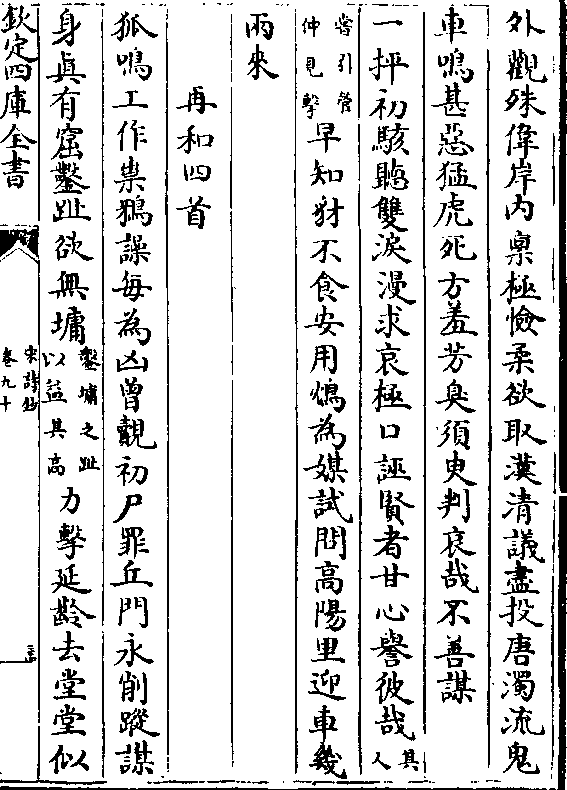 外觀殊偉岸内稟極憸柔欲取漢清議盡投唐濁流鬼
車鳴甚惡猛虎死方羞芳臭須史判哀哉不善謀
一抨初駭聽雙淚漫求哀極口誣賢者甘心譽彼哉其人
嘗引管仲見擊早知豺不食安用鴆為媒試問高陽里迎車幾
兩來
再和四首
狐鳴工作祟鵶譟每為凶曾覩初尸罪丘門永削蹤謀
身真有窟鑿趾欲無墉鑿墉之趾以益其高力擊延齡去堂堂似
欽定四庫全書
宋詩鈔
卷九十